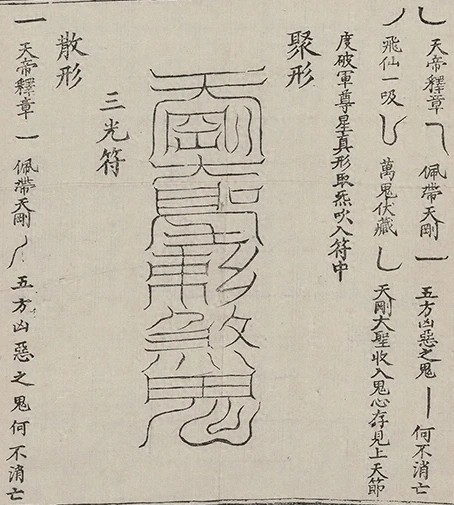 天帝釋章 佩帶天剛 五方凶惡之鬼 何不消亡
飛仙一吸 萬鬼伏藏 天剛大聖收入鬼心存見上天節
度破軍尊星真形取炁吹入符中
聚形
三光符
散形
天帝釋章 佩帶天剛 五方凶惡之鬼何不消亡